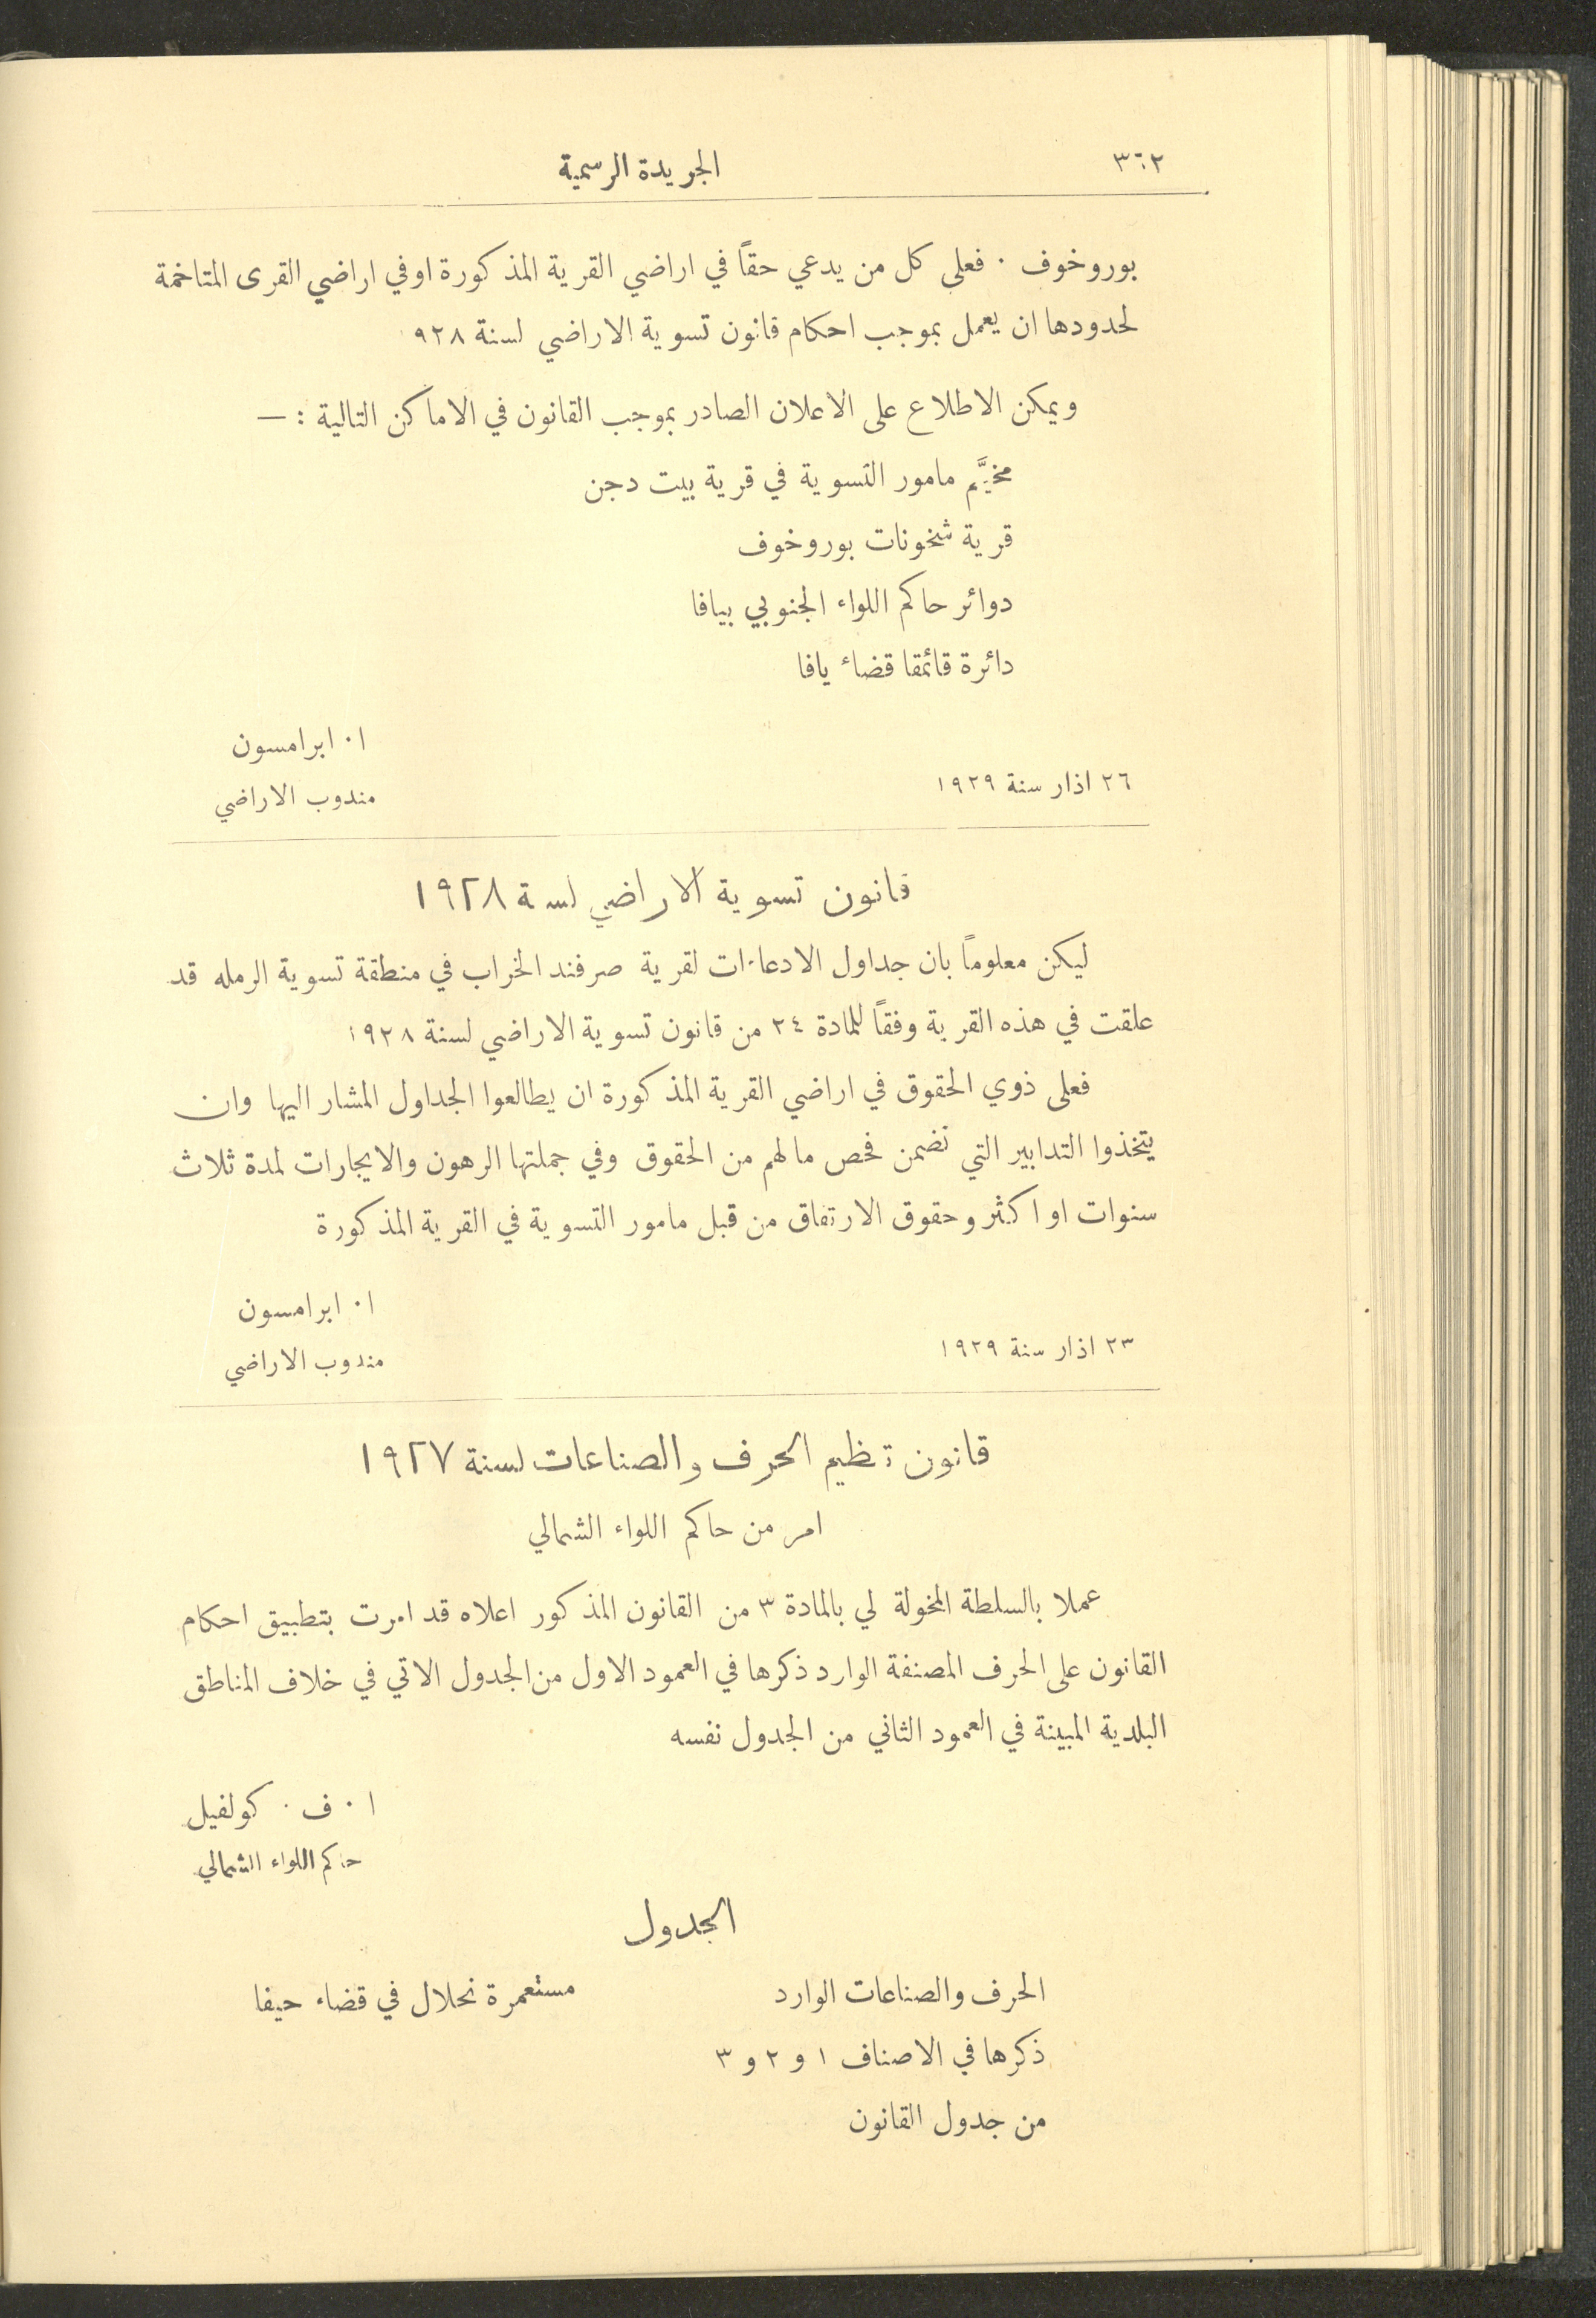 ٣٦٢
الجريدة الرسمية
بوروخوف · فعلى كل من يدعي حقاً في اراضي القرية المذكورة اوفي اراضي القرى المتاخمة
لحدودها ان يعمل بموجب احكام قانون تسوية الاراضي لسنة ٩٢٨
ويمكن الاطلاع على الاعلان الصادر بموجب القانون في الاماكن التالية : —
مخيَّم مامور التسوية في قرية بيت دجن
قرية شخونات بوروخوف
دوائر حاكم اللواء الجنوبي بيافا
دائرة قائمقا قضاء يافا
ا · ابرامسون
٢٦ اذار سنة ١٩٢٩
مندوب الاراضي
قانون تسوية الاراضي لسة ١٩٢٨
ليكن معلوماً بان جداول الادعاءات لقرية صرفند الخراب في منطقة تسوية الرمله قد
علقت في هذه القرية وفقاً للمادة ٢٤ من قانون تسوية الاراضي لسنة ١٩٢٨
فعلى ذوي الحقوق في اراضي القرية المذكورة ان يطالعوا الجداول المشار اليها وان
يتخذوا التدابير التي تضمن فحص مالهم من الحقوق وفي جملتها الرهون والايجارات لمدة ثلاث
سنوات او اكثر وحقوق الارتفاق من قبل مامور التسوية في القرية المذكورة
ا · ابرامسون
٢٣ اذار سنة ١٩٢٩
مندوب الاراضي
قانون تنظيم الحرف والصناعات لسنة ١٩٢٧
امر من حاكم اللواء الشمالي
عملا بالسلطة المخولة لي بالمادة ٣ من القانون المذكور اعلاه قد امرت بتطبيق احكام
القانون على الحرف المصنفة الوارد ذكرها في العمود الاول من الجدول الاتي في خلاف المناطق
البلدية المبينة في العمود الثاني من الجدول نفسه
ا · ف · كولفيل
حاكم اللواء الشمالي
الجدول
الحرف والصناعات الوارد
مستعمرة نحلال في قضاء حيفا
ذكرها في الاصناف ١ و ٢ و ٣
من جدول القانون